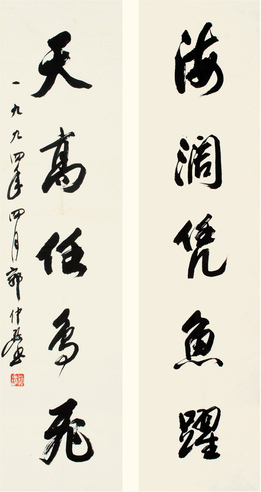 海濶凭魚躍
天高任鸟飛
一九九四年四月郭仲选